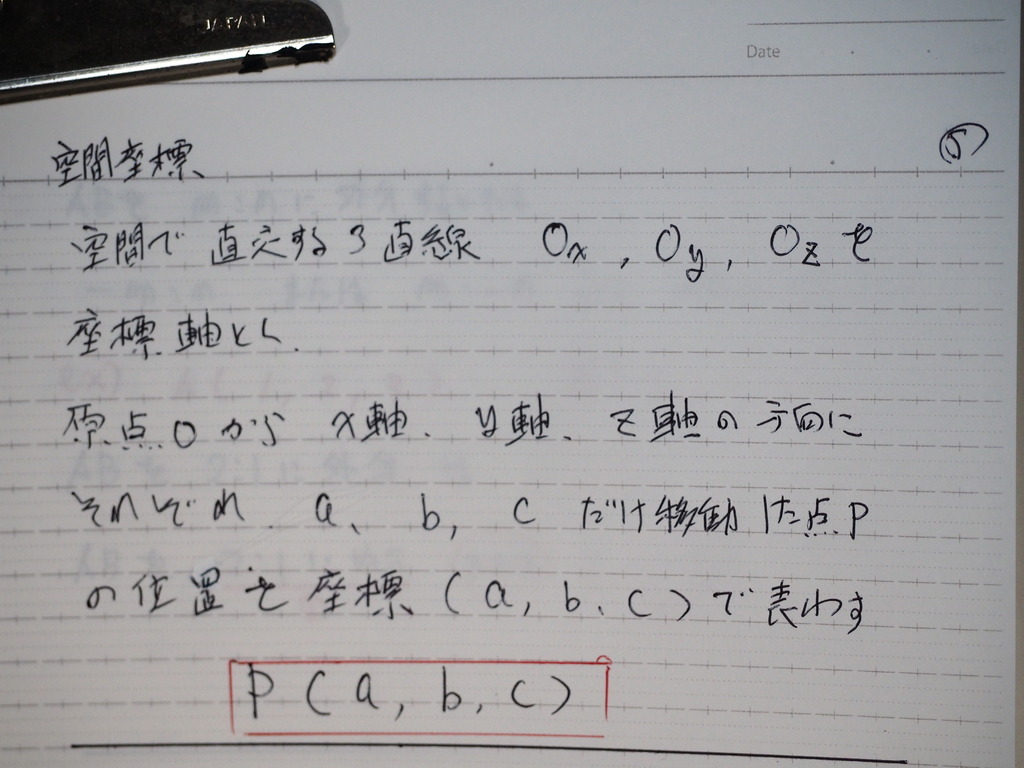 JAPAN
Date
空間座標 ⑤
空間で直交する3直線 Ox, Oy, Ozを
座標軸とし、
原点Oから x軸、y軸、z軸の方向に
それぞれ、a、b, c だけ移動した点P
の位置を座標(a, b, c)で表わす
P(a, b, c)